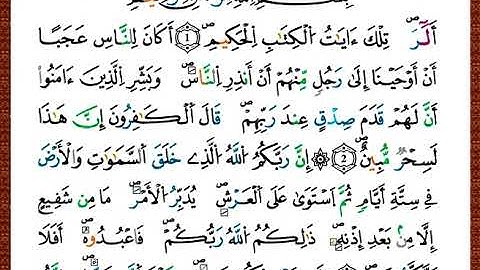 أَلَٓرۖ تِلْكَ ءَايَٰتُ اُ۬لْكِتَٰبِ اِ۬لْحَكِيمِۖ 1 أَكَانَ لِلنَّاسِ عَجَبًا
أَنْ أَوْحَيْنَا إِلَىٰ رَجُلٍ مِّنْهُمْ أَنْ أَنذِرِ اِ۬لنَّاسَۖ وَبَشِّرِ اِ۬لَّذِينَ ءَامَنُوا
أَنَّ لَهُمْ قَدَمَ صِدْقٍ عِندَ رَبِّهِمْۖ قَالَ اَ۬لْكَٰفِرُونَ إِنَّ هَٰذَا
لَسِحْرٌ مُّبِينٌۖ 2 ۞ إِنَّ رَبَّكُمُ اُ۬للَّهُ اُ۬لَّذِے خَلَقَ اَ۬لسَّمَٰوَٰتِ وَالْأَرْضَ
فِے سِتَّةِ أَيَّامٍ ثُمَّ اَ۪سْتَوَىٰ عَلَى اَ۬لْعَرْشِۖ يُدَبِّرُ اُ۬لْأَمْرَۖ مَا مِن شَفِيعٍ
إِلَّا مِنۢ بَعْدِ إِذْنِهِۖ ذَٰلِكُمُ اُ۬للَّهُ رَبُّكُمْۖ فَاعْبُدُوهُۖ أَفَلَا